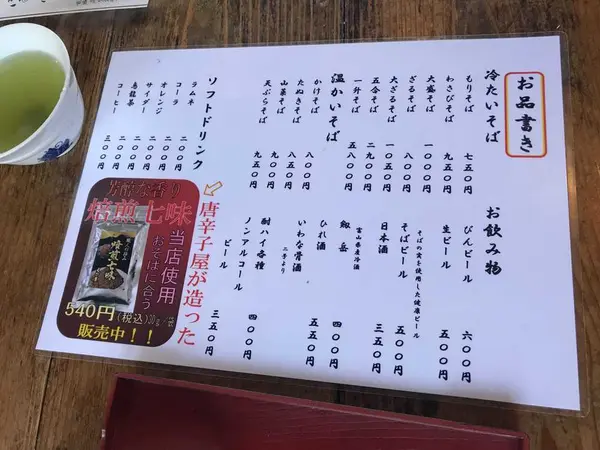 お品書き
冷たいそば
もりそば 七五〇円
わさびそば 九五〇円
大盛そば 一〇〇〇円
ざるそば 八〇〇円
大ざるそば
五合そば 二九〇〇円
一升そば 五八〇〇円
温かいそば
かけそば 八〇〇円
たぬきそば 八五〇円
山菜そば
天ぷらそば 九五〇円
ソフトドリンク
ラムネ 二〇〇円
コーラ 二〇〇円
オレンジ 二〇〇円
サイダー 二〇〇円
烏龍茶 二〇〇円
コーヒー 三〇〇円
お飲み物
びんビール 六〇〇円
生ビール 五五〇円
そばの実を使用した健康ビール
そばビール 五〇〇円
日本酒 三五〇円
富山県産冷酒
剱岳 四〇〇円
ひれ酒 五五〇円
いわな骨酒
二合より
酎ハイ各種 四〇〇円
ノンアルコール
ビール 三五〇円
唐辛子屋が造った
焙煎七味
当店使用
おそばに合う
焙煎七味
540円(税込)
販売中!!